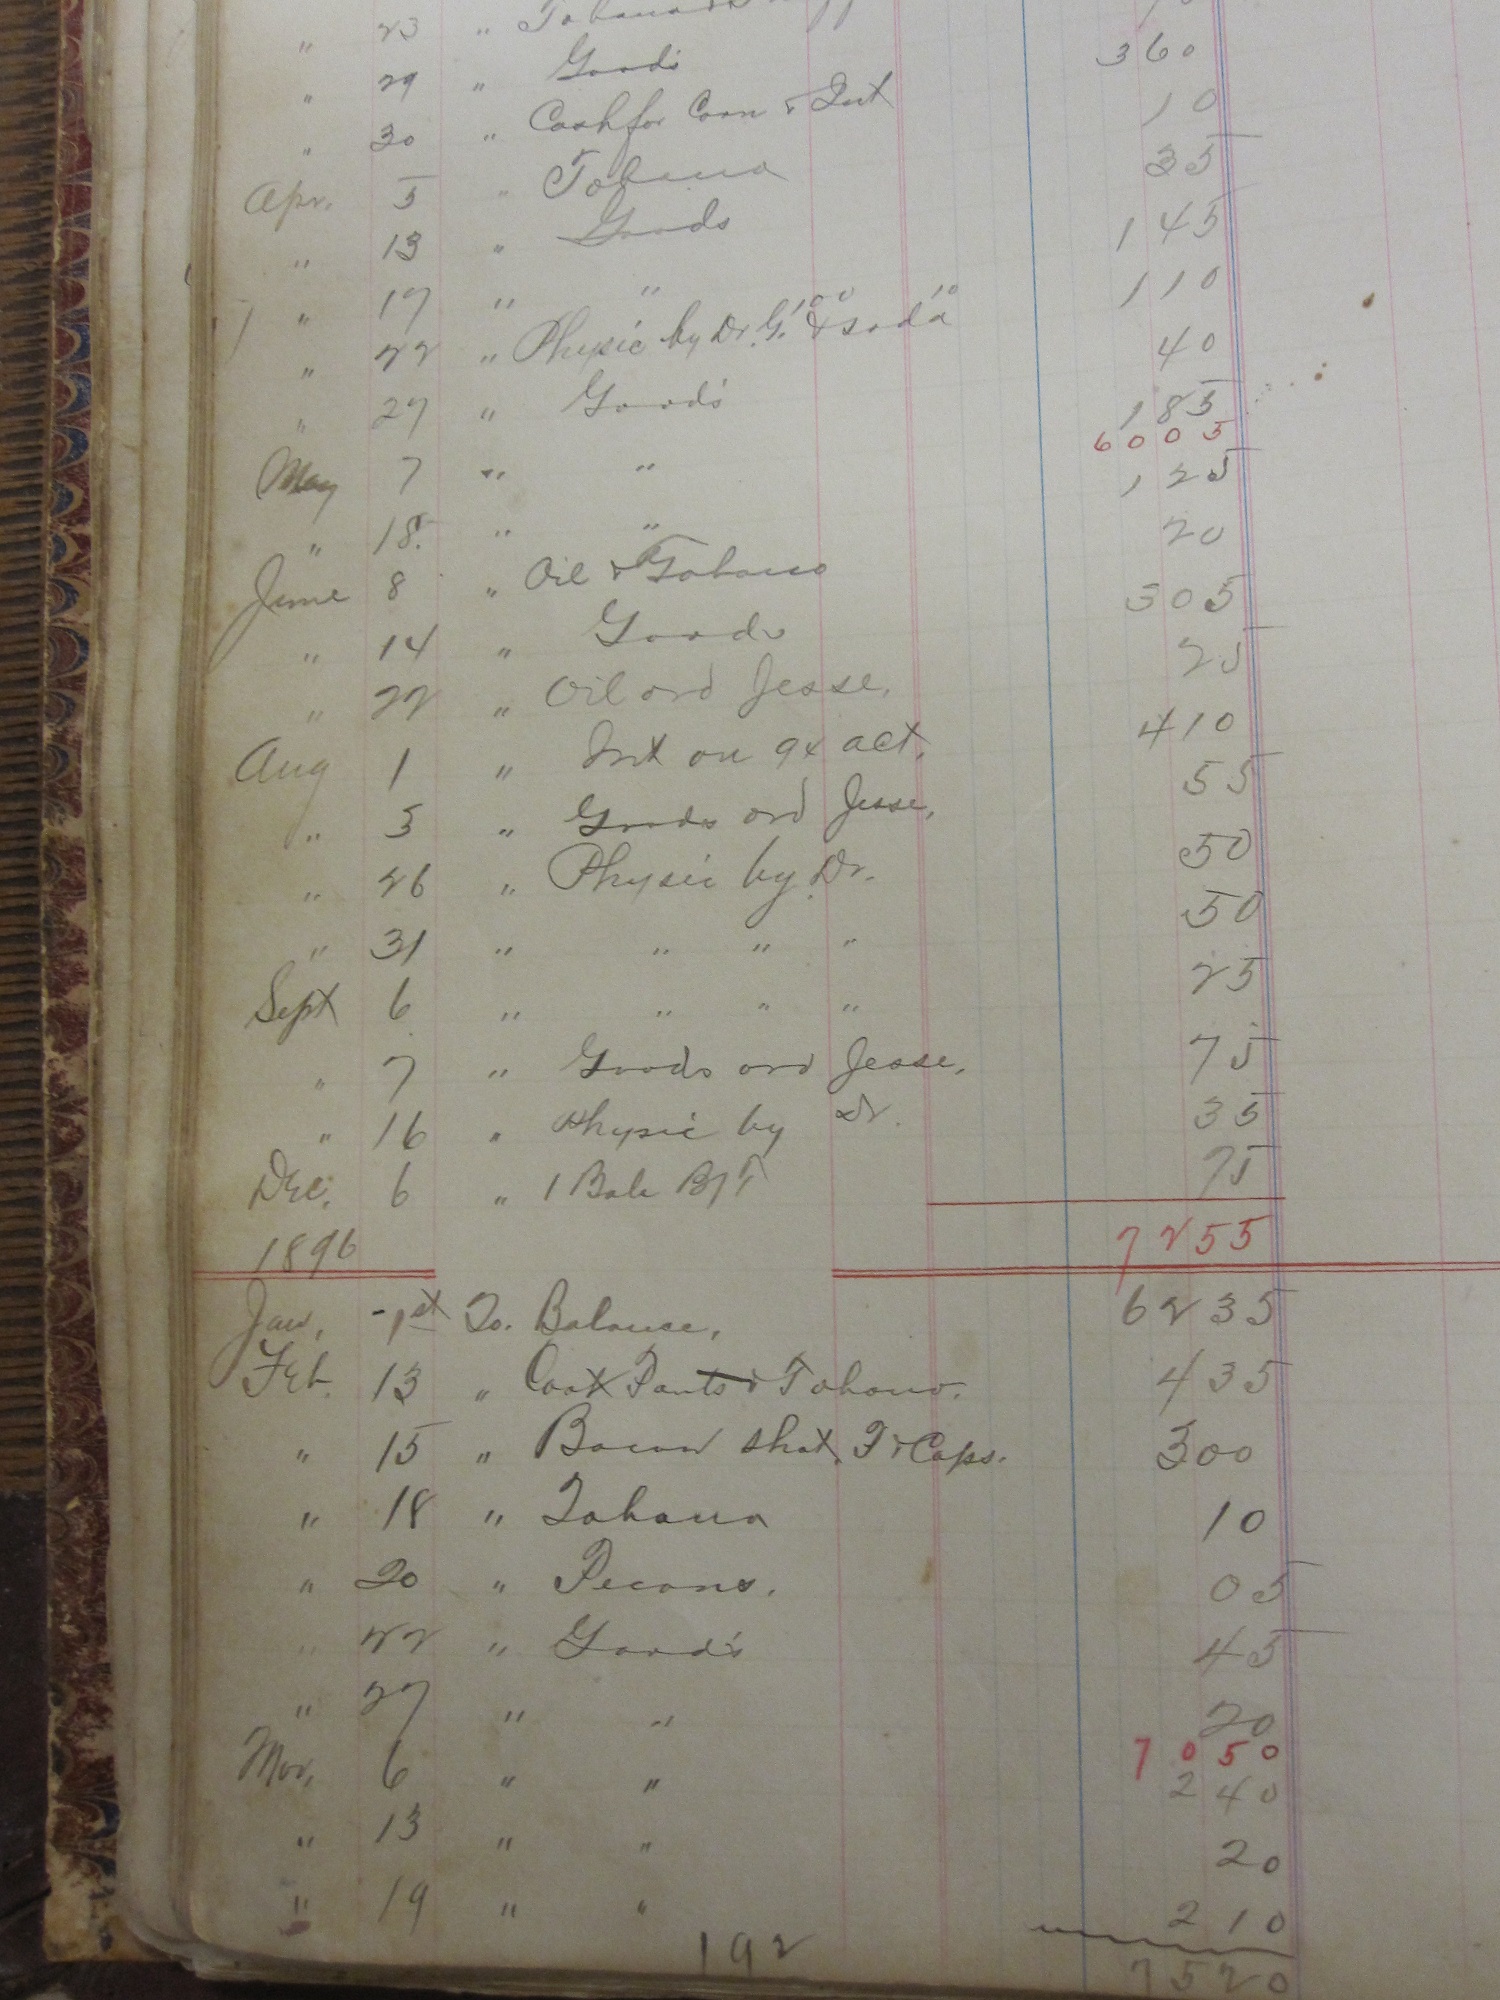 " 23 "
" 29 " Goods 360
" 30 " Cash for Corn & Int 10
Apr. 5 " Tobacco 35
" 13 " Goods 145
" 17 " " 110
" 22 " Physic by Dr. G. 100 & soda 10 40
" 27 " Goods 185
6005
May 7 " " 125
" 18. " " 20
June 8 " Oil & Tobacco 305
" 14 " Goods 25
" 22 " Oil ord Jesse. 410
Aug 1 " Int on 94 act. 55
" 5 " Goods ord Jesse. 50
" 26 " Physic by Dr. 50
" 31 " " " " 25
Sept 6 " " " " 75
" 7 " Goods ord Jesse. 35
" 16 " Physic by Dr. 75
Dec. 6 " 1 Bale B/T
7255
1896
Jan. 1st To. Balance. 6235
Feb. 13 " Coat Pants & Tobacco. 435
" 15 " Bacon Shot. T & Caps. 300
" 18 " Tobacco 10
" 20 " Pecans. 05
" 22 " Goods 45
" 27 " " 20
7050
Mar. 6 " " 240
" 13 " " 20
" 19 " " 210
192 7520